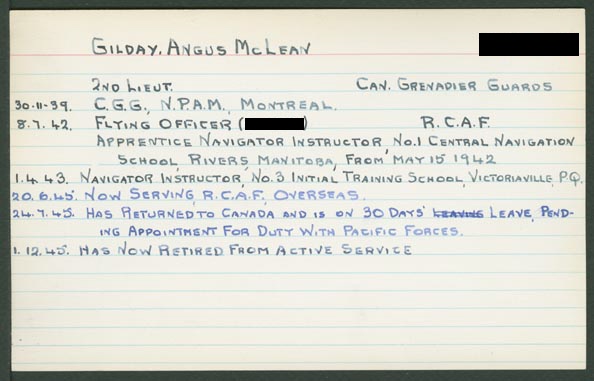 GILDAY, ANGUS MCLEAN
2ND LIEUT. CAN. GRENADIER GUARDS
30-11-39. C.G.G., N.P.A.M., MONTREAL.
8.7.42. FLYING OFFICER ( ) R.C.A.F.
APPRENTICE NAVIGATOR INSTRUCTOR, NO.1 CENTRAL NAVIGATION
SCHOOL RIVERS, MANITOBA, FROM MAY 15 1942
1.4.43. NAVIGATOR INSTRUCTOR, NO.3 INITIAL TRAINING SCHOOL, VICTORIAVILLE, P.Q.
20.6.45. NOW SERVING, R.C.A.F., OVERSEAS.
24.7.45. HAS RETURNED TO CANADA AND IS ON 30 DAYS' LEAVING LEAVE, PEND-
ING APPOINTMENT FOR DUTY WITH PACIFIC FORCES.
1.12.45. HAS NOW RETIRED FROM ACTIVE SERVICE